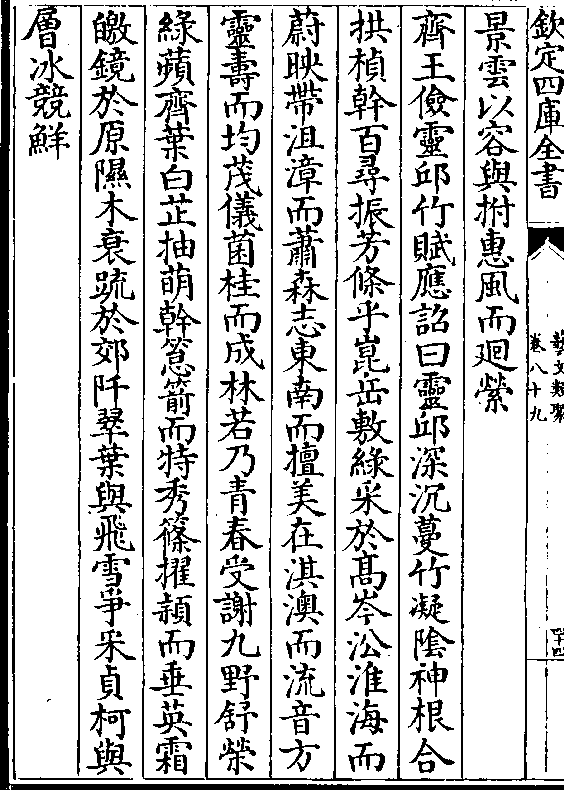 欽定四庫全書
藝文類聚
卷八十九
四十四
景雲以容與拊惠風而迴縈
齊王儉靈邱竹賦應詔曰靈邱深沉蔓竹凝陰神根合
拱楨幹百尋振芳條乎崑岳敷綠采於髙岑㳂淮海而
蔚映帶沮漳而蕭森志東南而擅美在淇澳而流音方
靈壽而均茂儀菌桂而成林若乃青春受謝九野舒榮
綠蘋齊葉白芷抽萌幹箢箭而特秀篠擢頴而垂英霜
皦鏡於原隰木衰踈於郊阡翠葉與飛雪爭采貞柯與
層冰競鮮